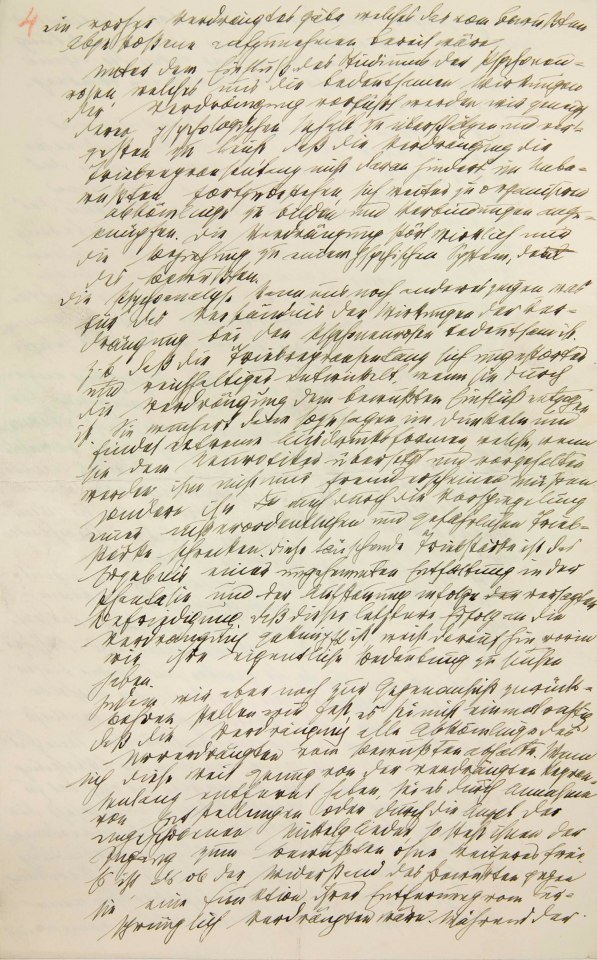 4 ein vorher Verdrängtes gäbe welches das vom Bewußten
Abgestoßene aufzunehmen bereit wäre
Unter dem Einfluß des Studiums der Psychoneu-
rosen welches uns die bedeutsamen Wirkungen
der Verdrängung vorführt werden wir geneigt
deren psychologischen Inhalt zu überschätzen und ver-
gessen zu leicht daß die Verdrängung die
Triebrepräsentanz nicht daran hindert im Unbe-
wußten fortzubestehen sich weiter zu organisieren
Abkömmlinge zu bilden und Verbindungen anzu-
knüpfen. Die Verdrängung stört wirklich nur
die Beziehung zu einem psychischen System, dem
des Bewußten.
Die Psychoanalyse kann uns noch anderes zeigen was
für das Verständnis der Wirkungen der Ver-
drängung bei den Psychoneurosen bedeutsam ist
z. b. daß die Triebrepräsentanz sich ungestörter
und reichhaltiger entwickelt, wenn sie durch
die Verdrängung dem bewußten Einfluß entzogen
ist. Sie wuchert dann sozusagen im Dunkeln und
findet extreme Ausdrucksformen, welche, wenn
sie dem Neurotiker übersetzt und vorgehalten
werden ihm nicht nur fremd erscheinen müssen
sondern ihn auch durch die Vorspiegelung
einer außerordentlichen und gefährlichen Trieb-
stärke schrecken. Diese täuschende Triebstärke ist das
Ergebnis einer ungehemmten Entfaltung in der
Phantasie und der Aufstauung infolge der versagten
Befriedigung. Daß dieser letztere Erfolg an die
Verdrängung geknüpft ist weist darauf hin worin
wir ihre eigentliche Bedeutung zu suchen
haben.
Indem wir aber noch zur Gegenansicht zurück-
kehren stellen wir fest, es sei nicht einmal richtig
daß die Verdrängung alle Abkömmlinge des
Urverdrängten vom Bewußten abhalte. Wenn
sich diese weit genug von der verdrängten Repräs-
entanz entfernt haben sei es durch Annahme
von Entstellungen oder durch die Anzahl der
eingeschobenen Mittelglieder so steht ihnen der
Zugang zum Bewußten ohne weiteres frei
Es ist als ob der Widerstand des Bewußten gegen
sie eine Funktion ihrer Entfernung vom ur-
sprünglich Verdrängten wäre. Während der